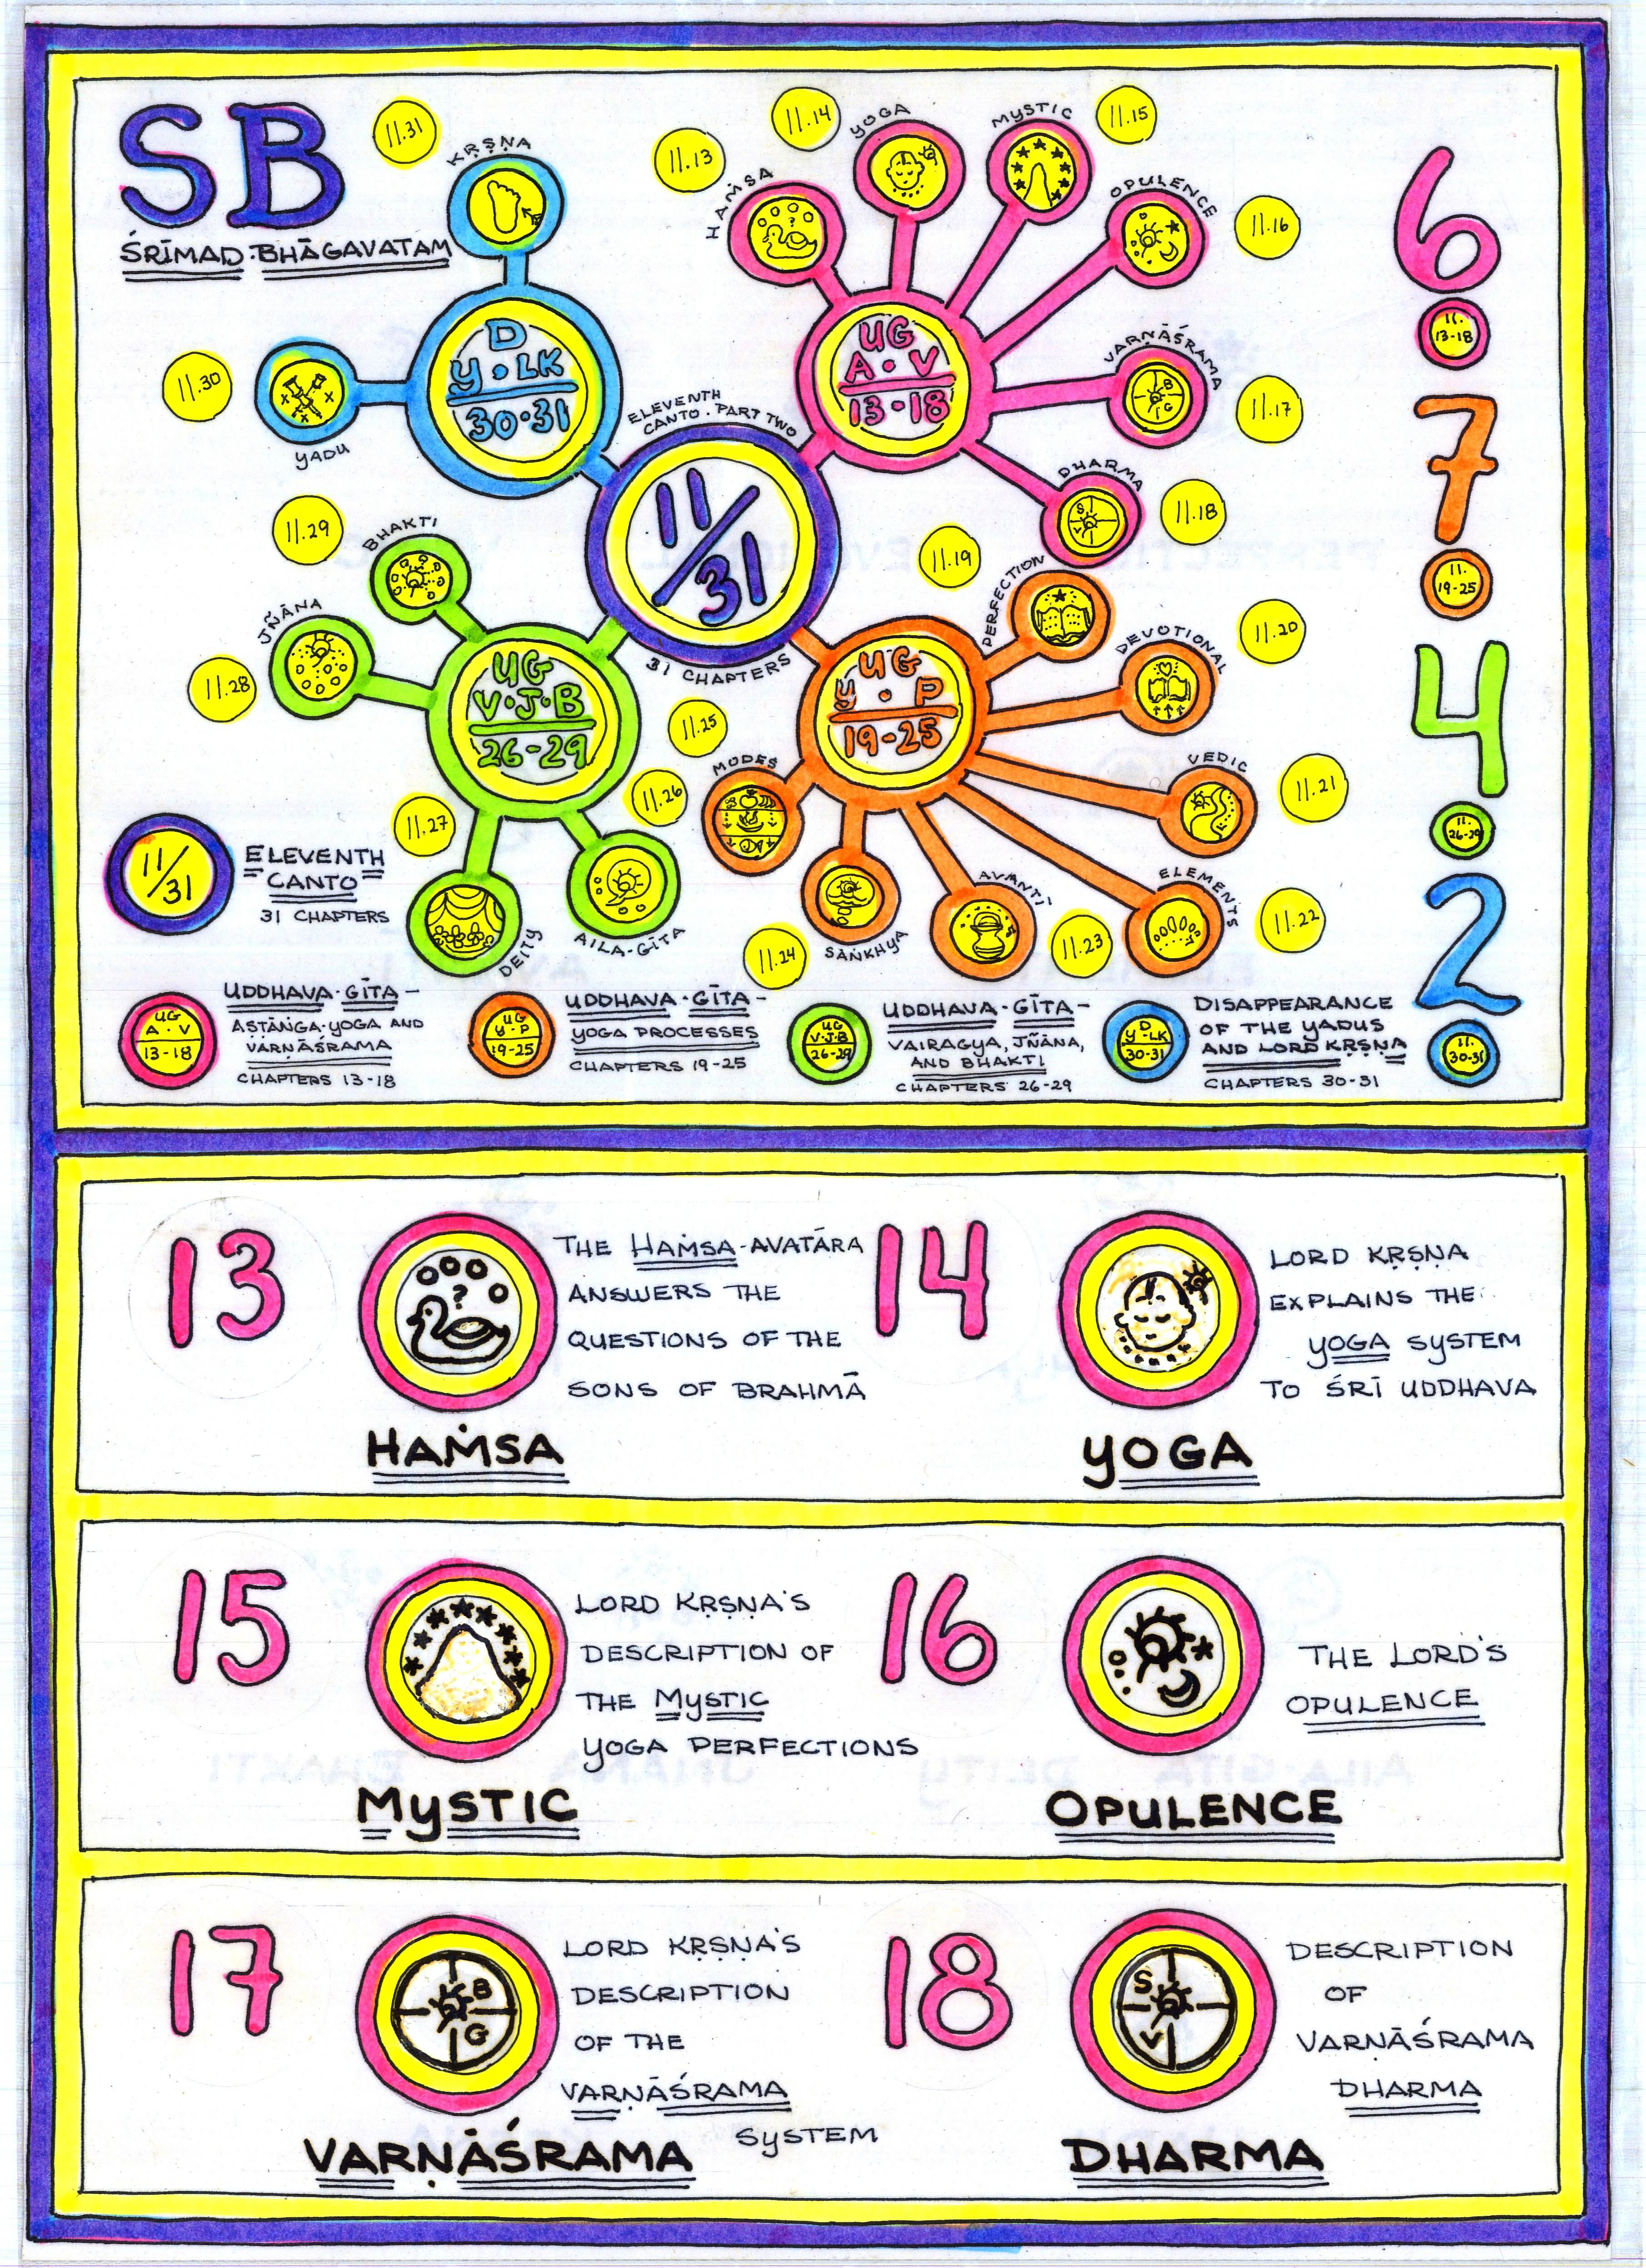 SB
ŚRĪMAD·BHĀGAVATAM
11.31
KṚṢṆA
11.30
YADU
D
Y·LK
30·31
11.13
HAṀSA
?
11.14
YOGA
MYSTIC
11.15
OPULENCE
11.16
VARṆĀŚRAMA
B
G
11.17
DHARMA
S
V
11.18
UG
A·V
13-18
ELEVENTH
CANTO·PART TWO
11/31
31 CHAPTERS
11.29
BHAKTI
JÑĀNA
11.28
UG
V·J·B
26-29
11.27
DEITY
11.26
AILA-GĪTA
11.19
PERFECTION
11.20
DEVOTIONAL
VEDIC
11.21
ELEMENTS
11.22
AVANTI
11.23
SĀṄKHYA
11.24
MODES
11.25
UG
Y·P
19-25
6
11.
13-18
7
11.
19-25
4
11.
26-29
2
11.
30-31
11/31
ELEVENTH
CANTO
31 CHAPTERS
UG
A·V
13-18
UDDHAVA·GĪTA-
AṢṬĀṄGA·YOGA AND
VARṆĀŚRAMA
CHAPTERS 13-18
UG
Y·P
19-25
UDDHAVA·GĪTA-
YOGA PROCESSES
CHAPTERS 19-25
UG
V·J·B
26-29
UDDHAVA·GĪTA-
VAIRAGYA, JÑĀNA,
AND BHAKTI
CHAPTERS 26-29
D
Y·LK
30-31
DISAPPEARANCE
OF THE YADUS
AND LORD KṚṢṆA
CHAPTERS 30-31
13
?
THE HAṀSA-AVATĀRA
ANSWERS THE
QUESTIONS OF THE
SONS OF BRAHMĀ
HAṀSA
14
LORD KṚṢṆA
EXPLAINS THE
YOGA SYSTEM
TO ŚRĪ UDDHAVA
YOGA
15
LORD KṚṢṆA'S
DESCRIPTION OF
THE MYSTIC
YOGA PERFECTIONS
MYSTIC
16
THE LORD'S
OPULENCE
OPULENCE
17
B
G
LORD KṚṢṆA'S
DESCRIPTION
OF THE
VARṆĀŚRAMA
SYSTEM
VARṆĀŚRAMA
18
S
V
DESCRIPTION
OF
VARṆĀŚRAMA
DHARMA
DHARMA